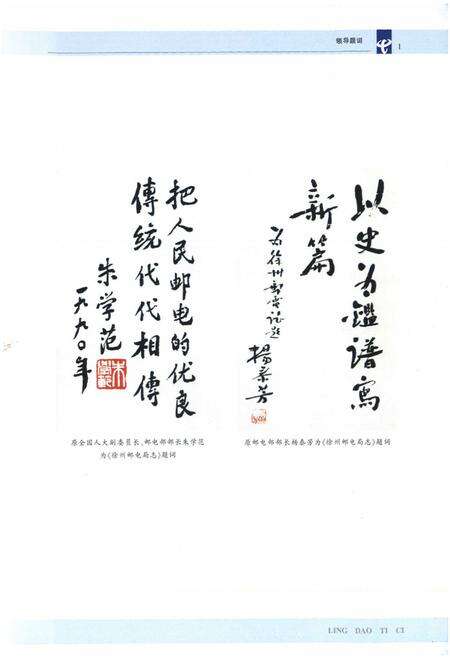 领导题词
1
以史为鑑谱寫
新篇
为徐州邮电志题
楊泰芳
把人民邮电的优良
傳统代代相傳
朱学范
一九九〇年
原全国人大副委员长、邮电部部长朱学范
为《徐州邮电局志》题词
原邮电部部长杨泰芳为《徐州邮电局志》题词
LING DAO TI CI